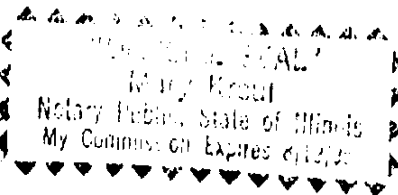 "OFFICIAL SEAL"
Mary Kroul
Notary Public, State of Illinois
My Commission Expires